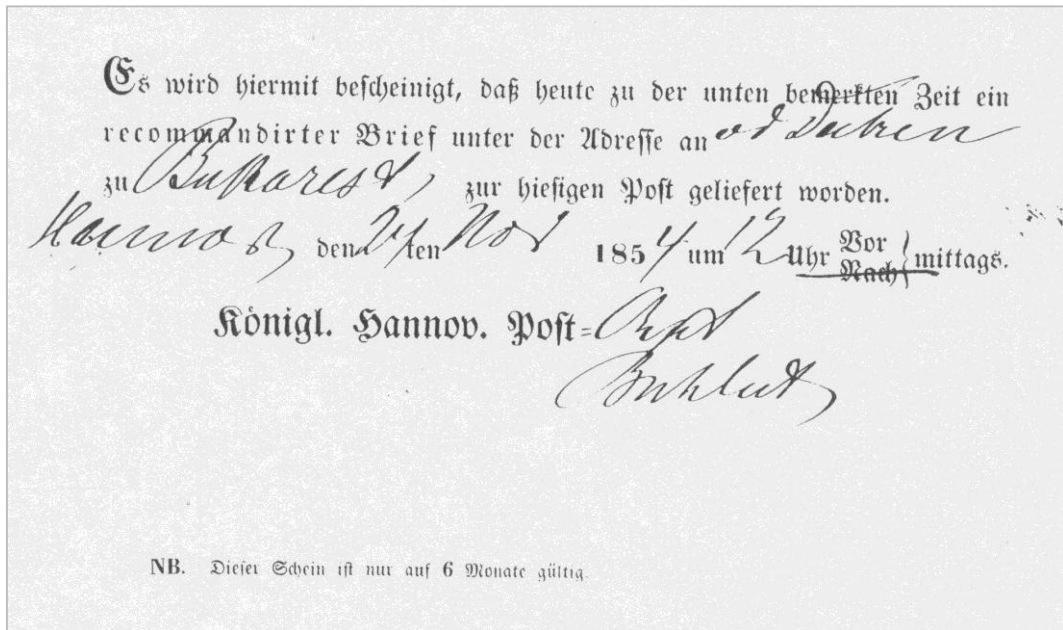 Es wird hiermit bescheinigt, daß heute zu der unten bemerkten Zeit ein
recommandirter Brief unter der Adresse an
zu Bukarest, zur hiesigen Post geliefert worden.
den ten Nov 1854 um 12 Uhr Vor
Nach mittags.
Königl. Hannov. Post=
NB. Dieser Schein ist nur auf 6 Monate gültig.